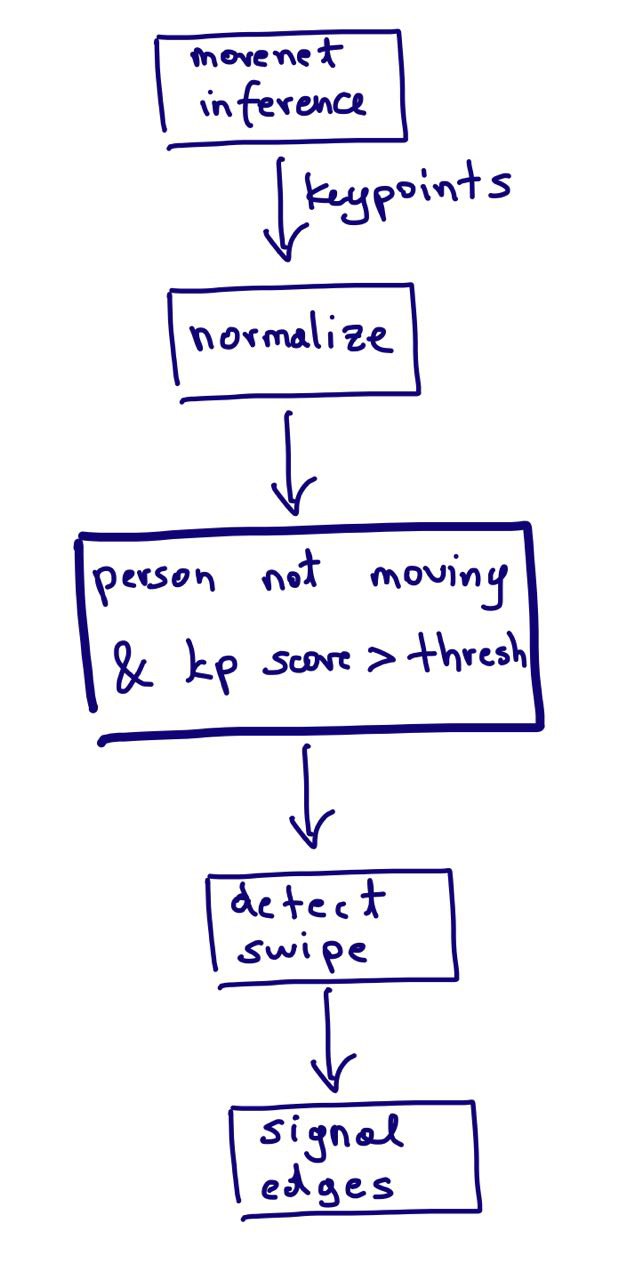 movenet
inference
keypoints
normalize
person not moving
& kp score > thresh
detect
swipe
signal
edges